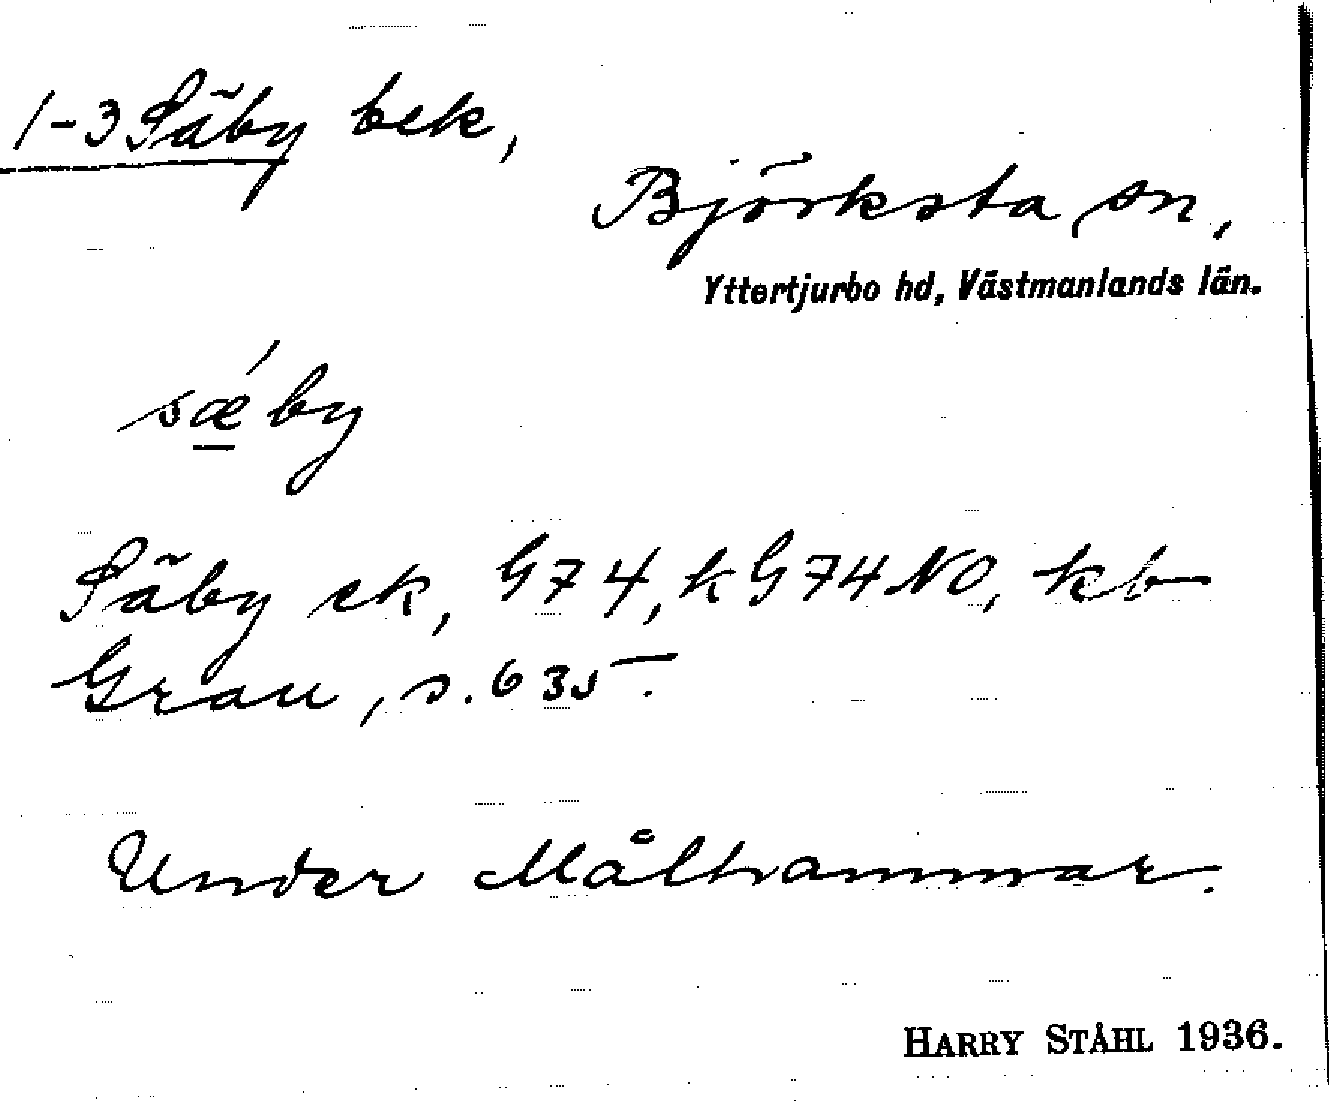 1-3 Säby bek,
Björksta sn,
Yttertjurbo hd, Västmanlands län.
sǽby
Säby ek, G74, k G74 NO, kb
Grau, s. 635.
Under Målhammar.
HARRY STÅHL 1936.